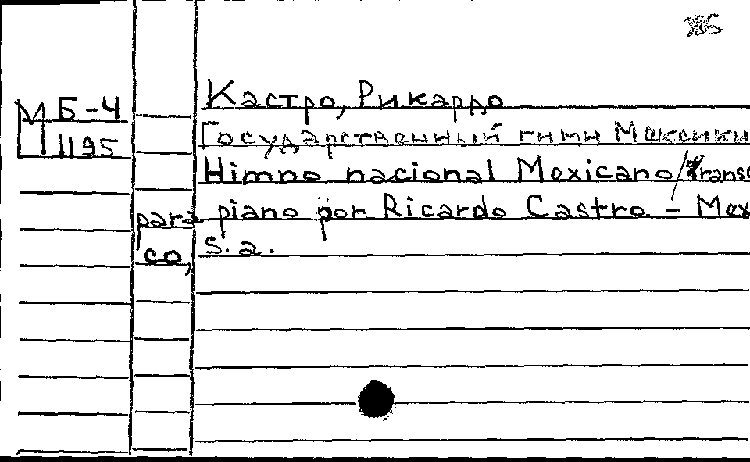 М Б-4
1195
Кастро, Рикардо
Государственный гимн Мексики
Himno nacional Mexicano/Transc
para piano por Ricardo Castro - Mexi
co, s.a.